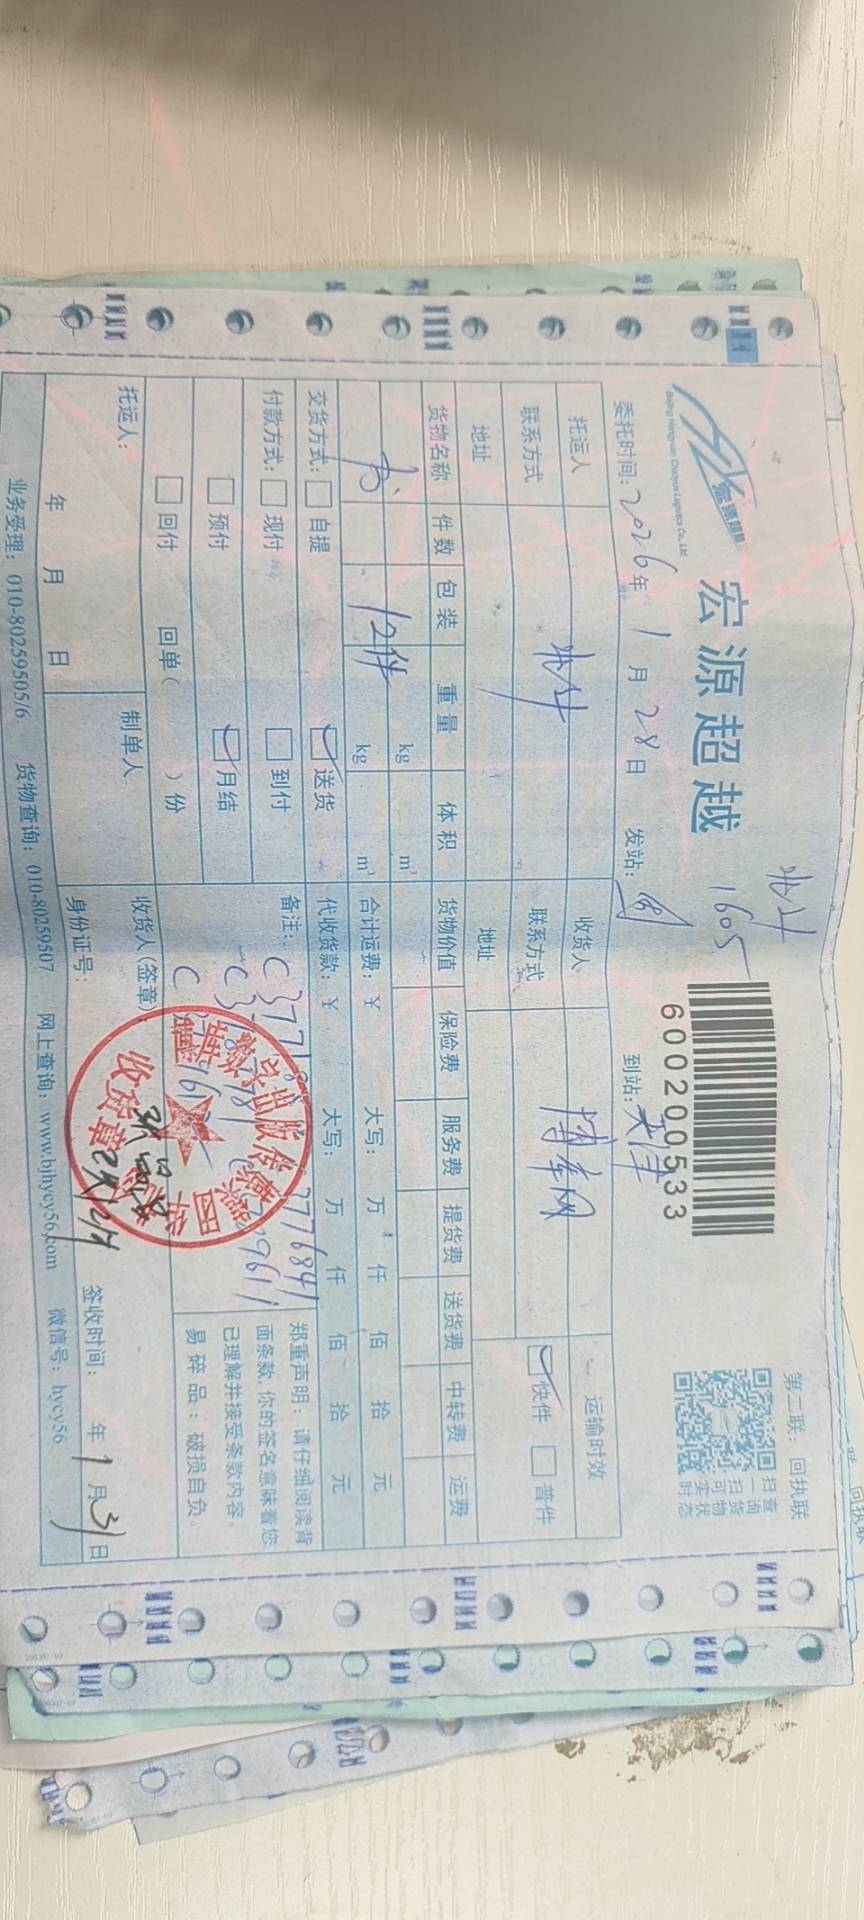 第二联：回执联
宏源超越
Beijing Hongyuan Chaoyue Logistics Co., Ltd.
1605
600200533
扫一扫
查询货物
可实时状态
委托时间：2026年1月28日 发站： 到站：天津
托运人 收货人 运输时效
联系方式 联系方式 快件 普件
地址 地址
货物名称 件数 包装 重量 体积 货物价值 保险费 服务费 提货费 送货费 中转费 运费
书 12件 kg m³
kg m³
合计运费：￥ 大写： 万 仟 佰 拾 元
交货方式： 自提 送货 代收货款：￥ 大写： 万 仟 佰 拾 元
付款方式： 现付 到付 备注：
预付 月结
回付 回单( )份
3776841
郑重声明：请仔细阅读背
面条款 你的签名意味着您
已理解并接受条款内容。
易碎品：破损自负。
托运人： 制单人 收货人(签章)
年 月 日 身份证号： 签收时间： 年1月31日
收货章
业务受理：010-80259505/6 货物查询：010-80259507 网上查询：www.bjhycy56.com 微信号：hycy56